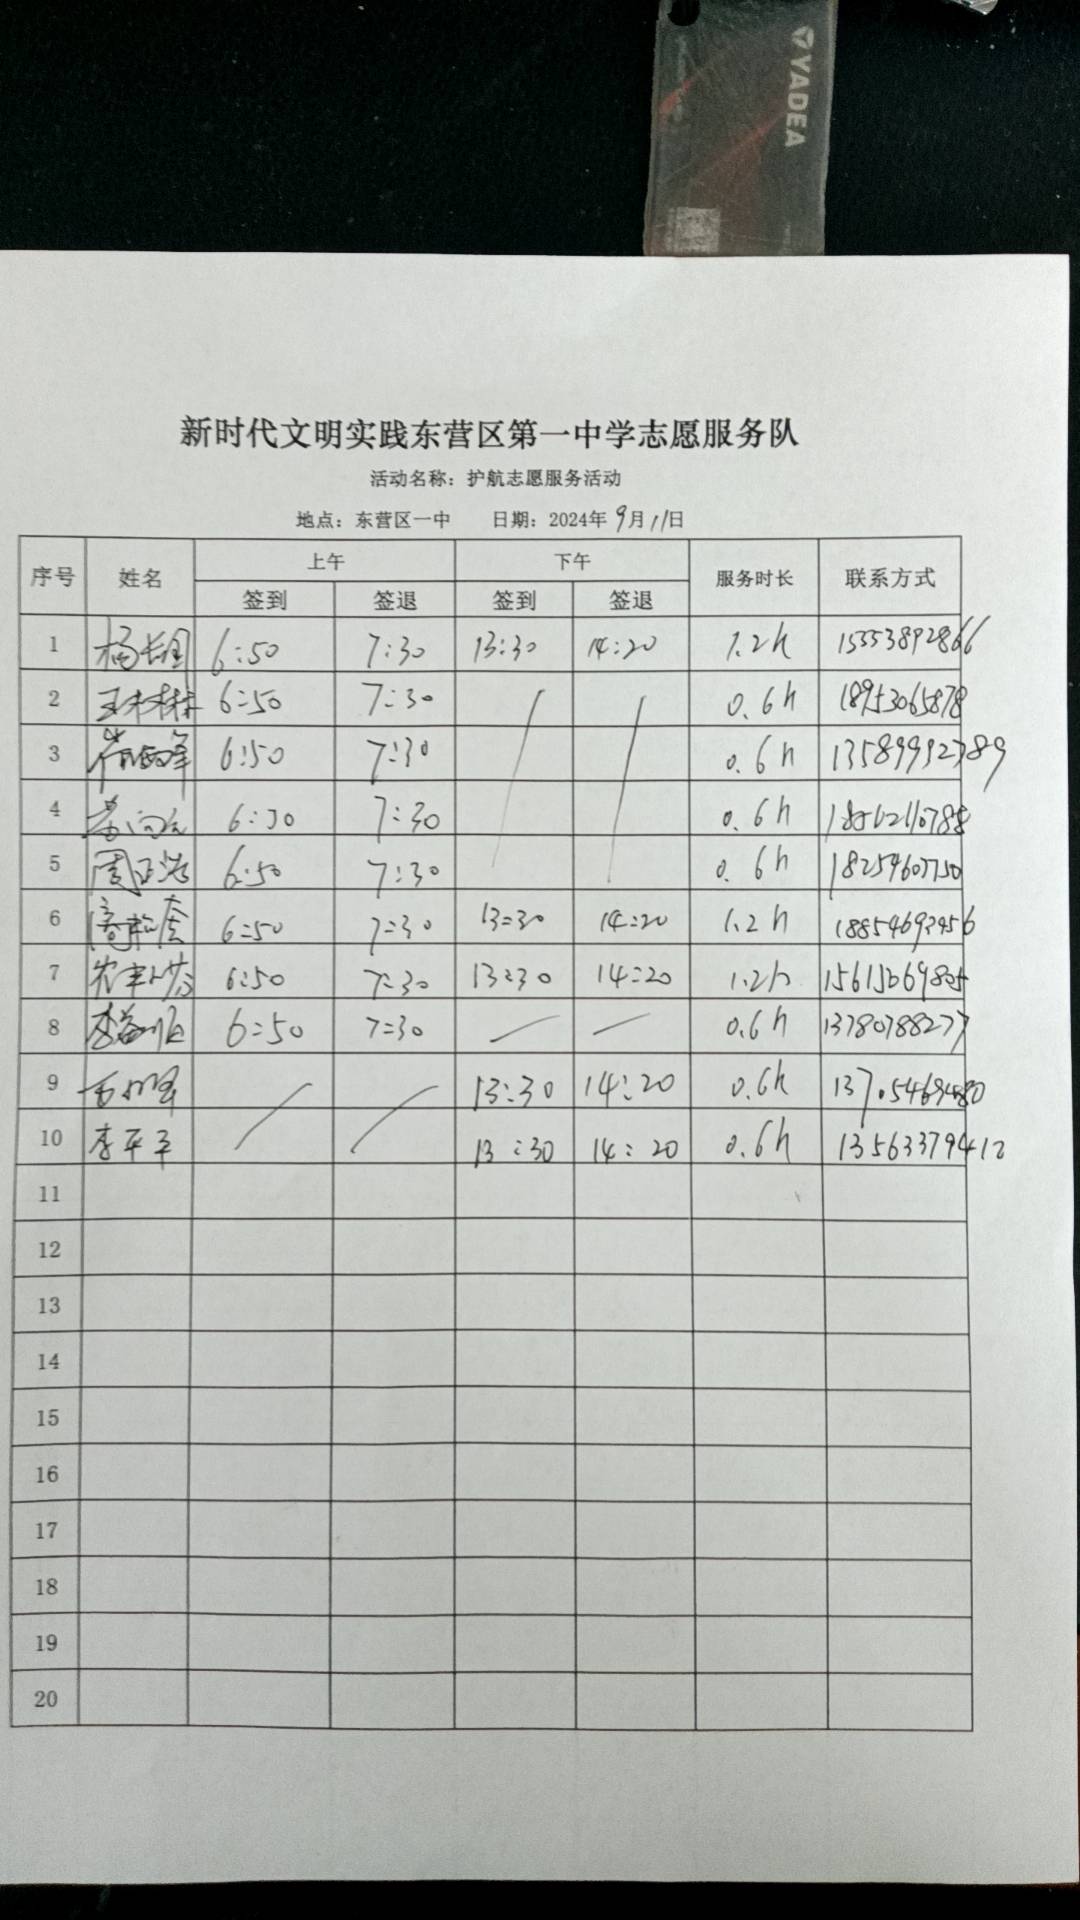 YADEA
新时代文明实践东营区第一中学志愿服务队
活动名称：护航志愿服务活动
地点：东营区一中 日期：2024年9月11日
序号 姓名 上午 下午 服务时长 联系方式
签到 签退 签到 签退
1 6:50 7:30 13:30 14:20 1.2h 15553892866
2 6:50 7:30 0.6h 18953065878
3 6:50 7:30 0.6h 13589992789
4 7:30 0.6h
5 周正浩 6:50 7:30 0.6h 18254607750
6 6:50 7:30 13:30 14:20 1.2h
7 6:50 7:30 13:30 14:20 1.2h
8 6:50 7:30 0.6h 13780788277
9 13:30 14:20 0.6h
10 李平平 13:30 14:20 0.6h 13563379412
11
12
13
14
15
16
17
18
19
20